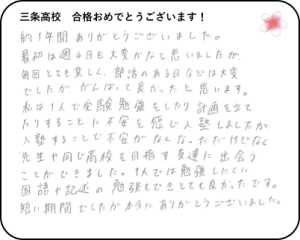 三条高校 合格おめでとうございます！
約1年間ありがとうございました。
最初は週4日も大変かなと思いましたが、
毎回とても楽しく、部活のある日などは大変
でしたが がんばって良かったと思います。
私は1人で受験勉強をしたり計画を立て
たりすることに不安を感じ入塾しましたが
入塾することで不安がなくなっただけでなく
先生や同じ高校を目指す友達に出会う
ことができました。1人では勉強しにくい
国語や記述の勉強もできとても良かったです。
短い期間でしたが本当にありがとうございました。